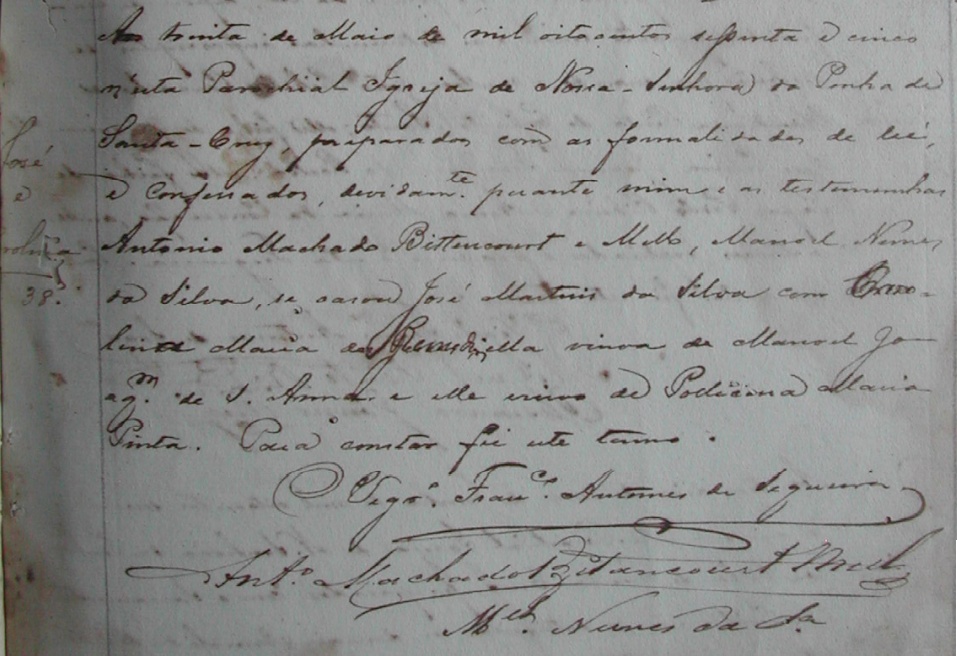 Aos trinta de Maio de mil oitocentos setenta e cinco
n'esta Parochial Igreja de Nossa-Senhora da Penha de
José
Santa-Cruz, preparados com as formalidades de lei,
e
e confessados, devidamte. perante mim e as testemunhas
Antonio Machado Bittencourt e Mello, Manoel Nunes
38.
da Silva, se casou José Martins da Silva com
Maria de ella viuva de Manoel Jo-
aqm. de S. Anna e elle viuvo de Maria
Pinta. Para constar fiz este termo.
Vigro. Franco. Antones de Sequeira
Anto. Machado Bitancourt Mello
Mel. Nunes da Sa